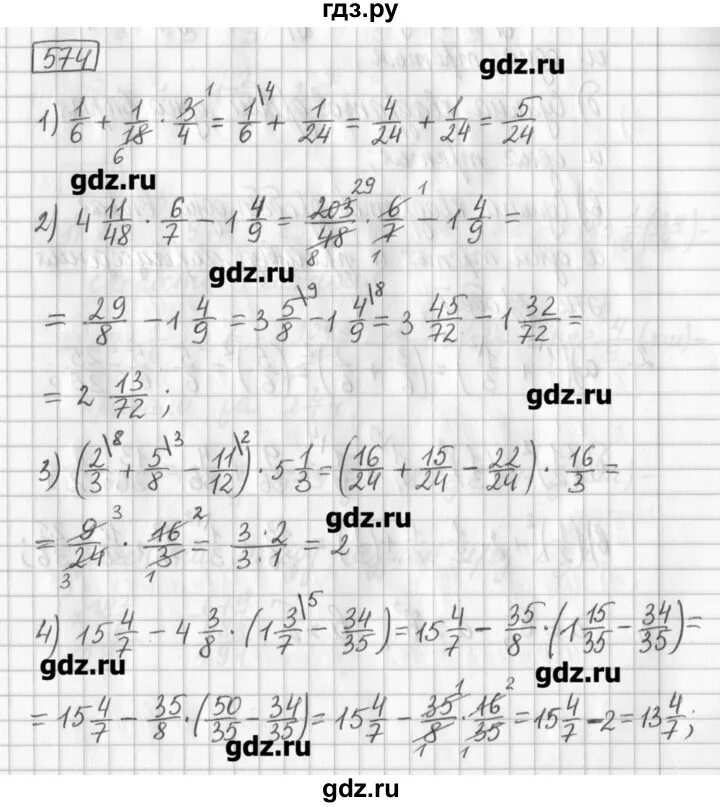 гдз.ру
574
gdz.ru
1) 1/6 + 1/18 · 3/4 = 1/6 + 1/24 = 4/24 + 1/24 = 5/24
6 1 \4
gdz.ru
29 1
2) 4 11/48 · 6/7 - 1 4/9 = 203/48 · 6/7 - 1 4/9 =
8 1
gdz.ru
= 29/8 - 1 4/9 = 3 5/8 \9 - 1 4/9 \8 = 3 45/72 - 1 32/72 =
= 2 13/72 ;
gdz.ru
3) (2/3 \8 + 5/8 \3 - 11/12 \2) · 5 1/3 = (16/24 + 15/24 - 22/24) · 16/3 =
gdz.ru
= 9/24 · 16/3 = 3·2/3·1 = 2
3 3 1 2
4) 15 4/7 - 4 3/8 · (1 3/7 \5 - 34/35) = 15 4/7 - 35/8 · (1 15/35 - 34/35) =
gdz.ru
gdz.ru
= 15 4/7 - 35/8 · (50/35 - 34/35) = 15 4/7 - 35/8 · 16/35 = 15 4/7 - 2 = 13 4/7 ;
1 1 1 2
gdz.ru
gdz.ru